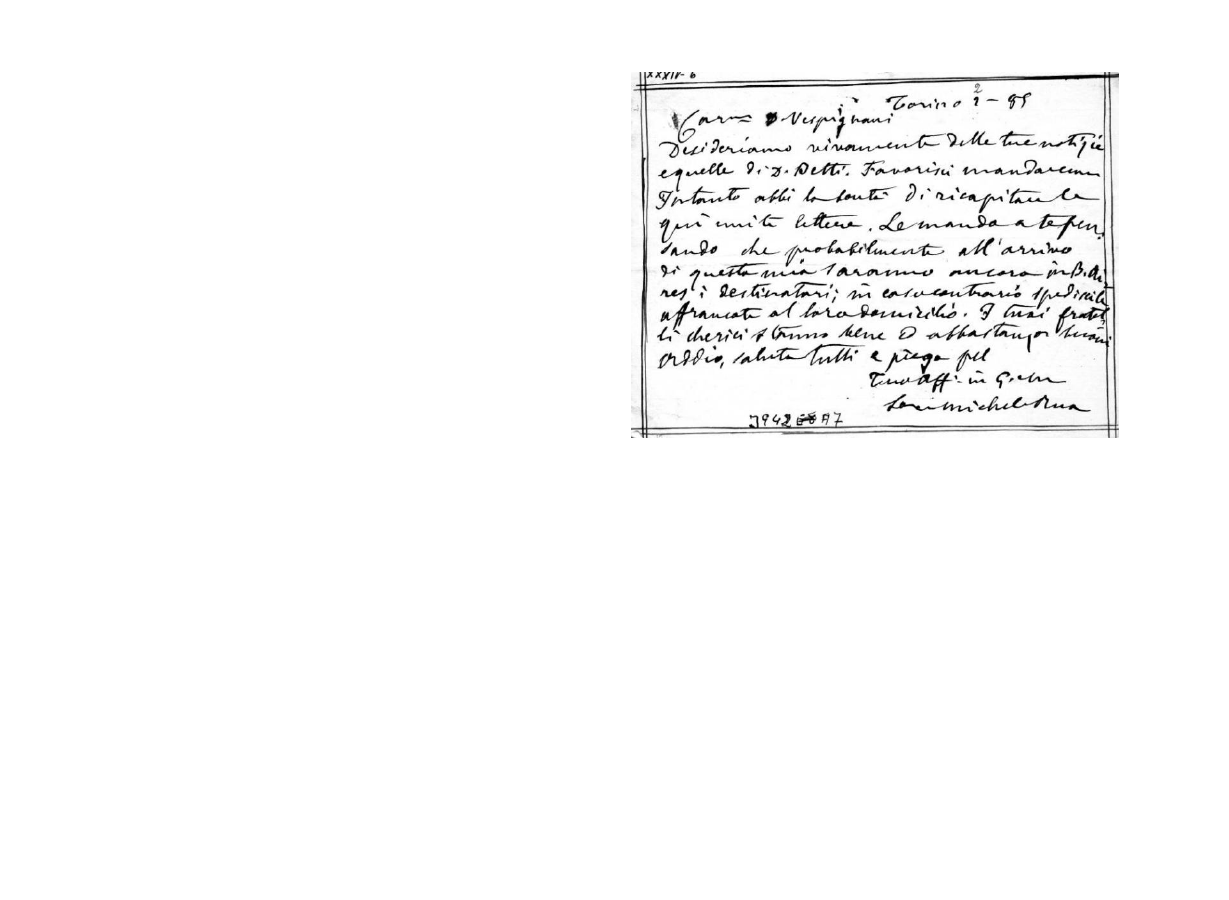 XXXIV-6
Torino 2 -
Caro D. Vespignani
Desideriamo vivamente delle tue notizie
e quelle di D. Betti. Favorisci mandarcene
Intanto abbi la bontà di ricapitare le
qui unite lettere. Le mando a te pen-
sando che probabilmente all'arrivo
di questa mia saranno ancora in B. Ai-
res i destinatari; in caso contrario spediscile
affrancate al loro domicilio. I tuoi fratel
li cherici stanno bene ed abbastanza buoni
Addio, saluta tutti e prega pel
Tuo aff. in G. e M.
Sac. Michele Rua
3942 A7